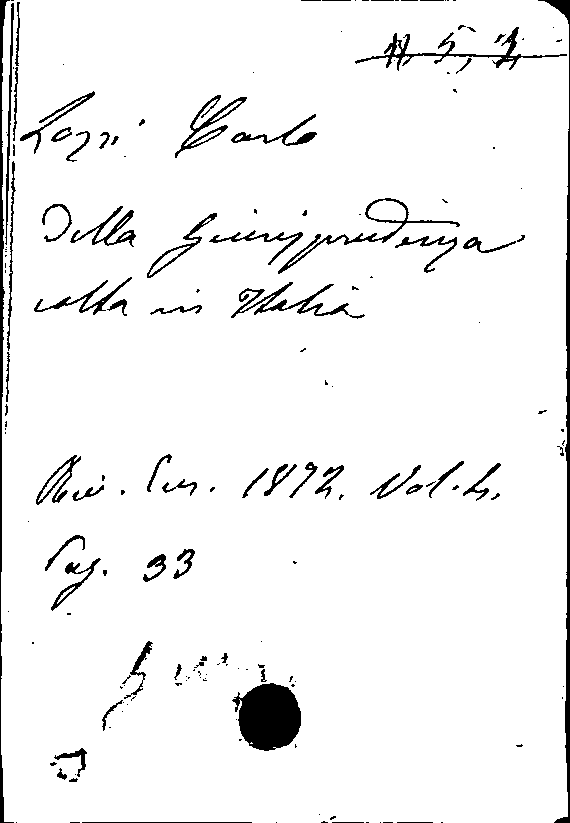 Lozzi Carlo
Della Giurisprudenza
colta in Italia
Riv. Eur. 1872. Vol. 4.
Pag. 33